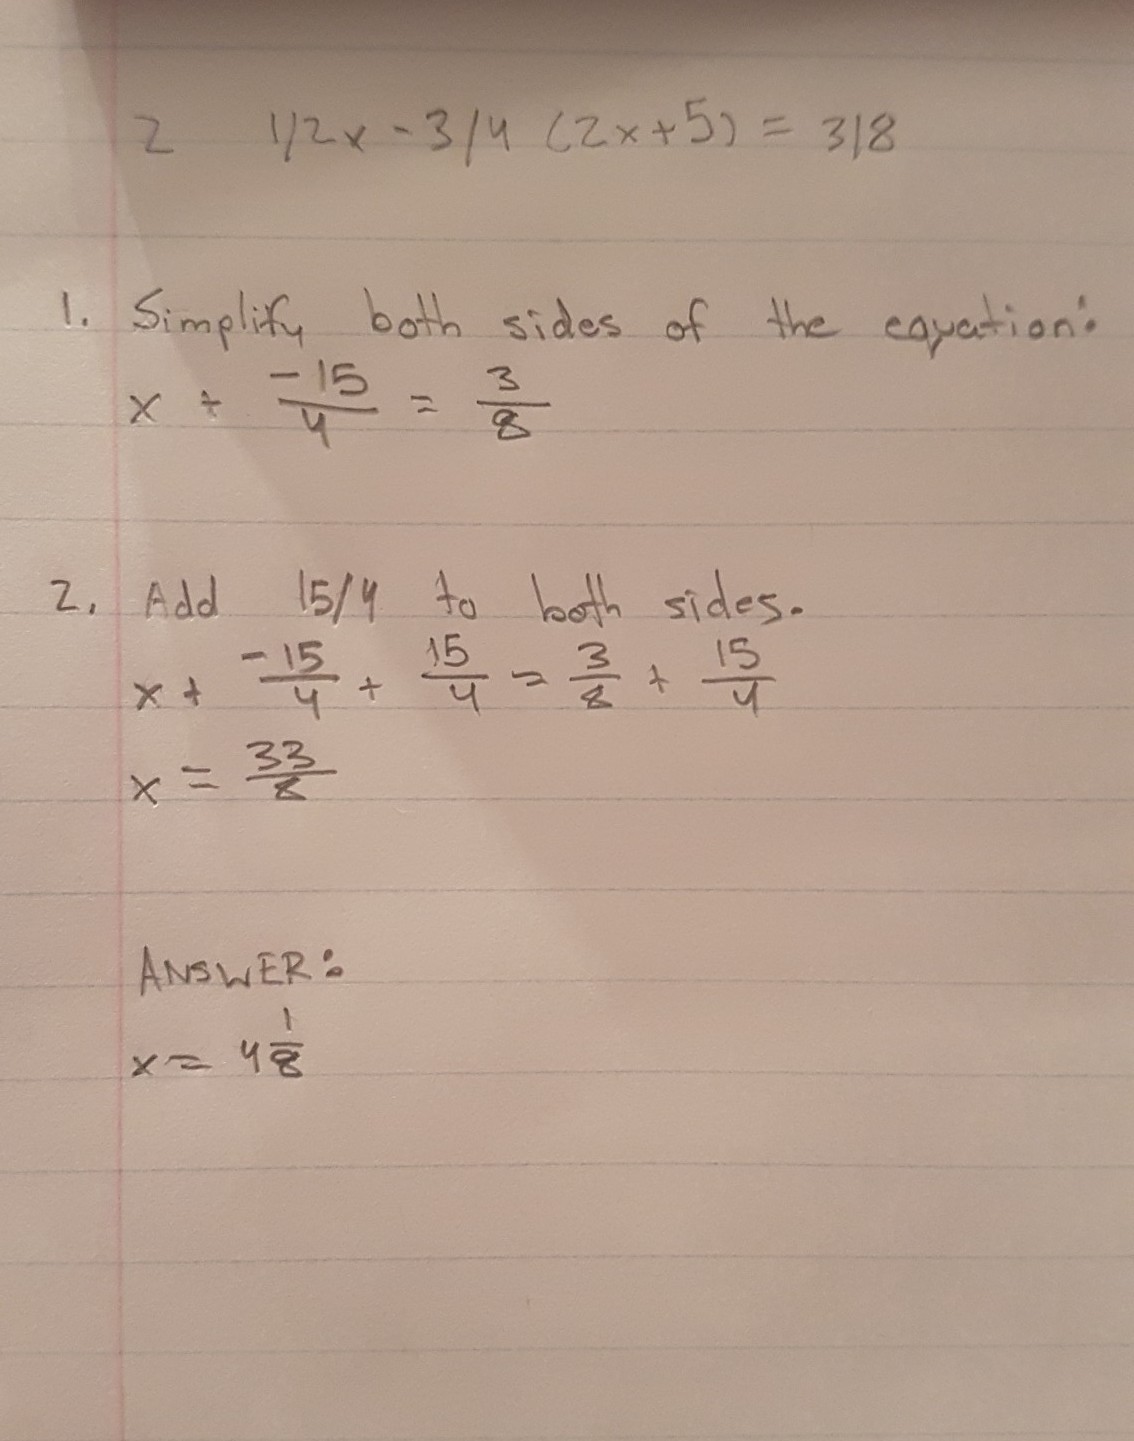 2 1/2x - 3/4 (2x+5) = 3/8
1. Simplify both sides of the equation:
x + -15/4 = 3/8
2. Add 15/4 to both sides.
x + -15/4 + 15/4 = 3/8 + 15/4
x = 33/8
ANSWER:
x = 4 1/8